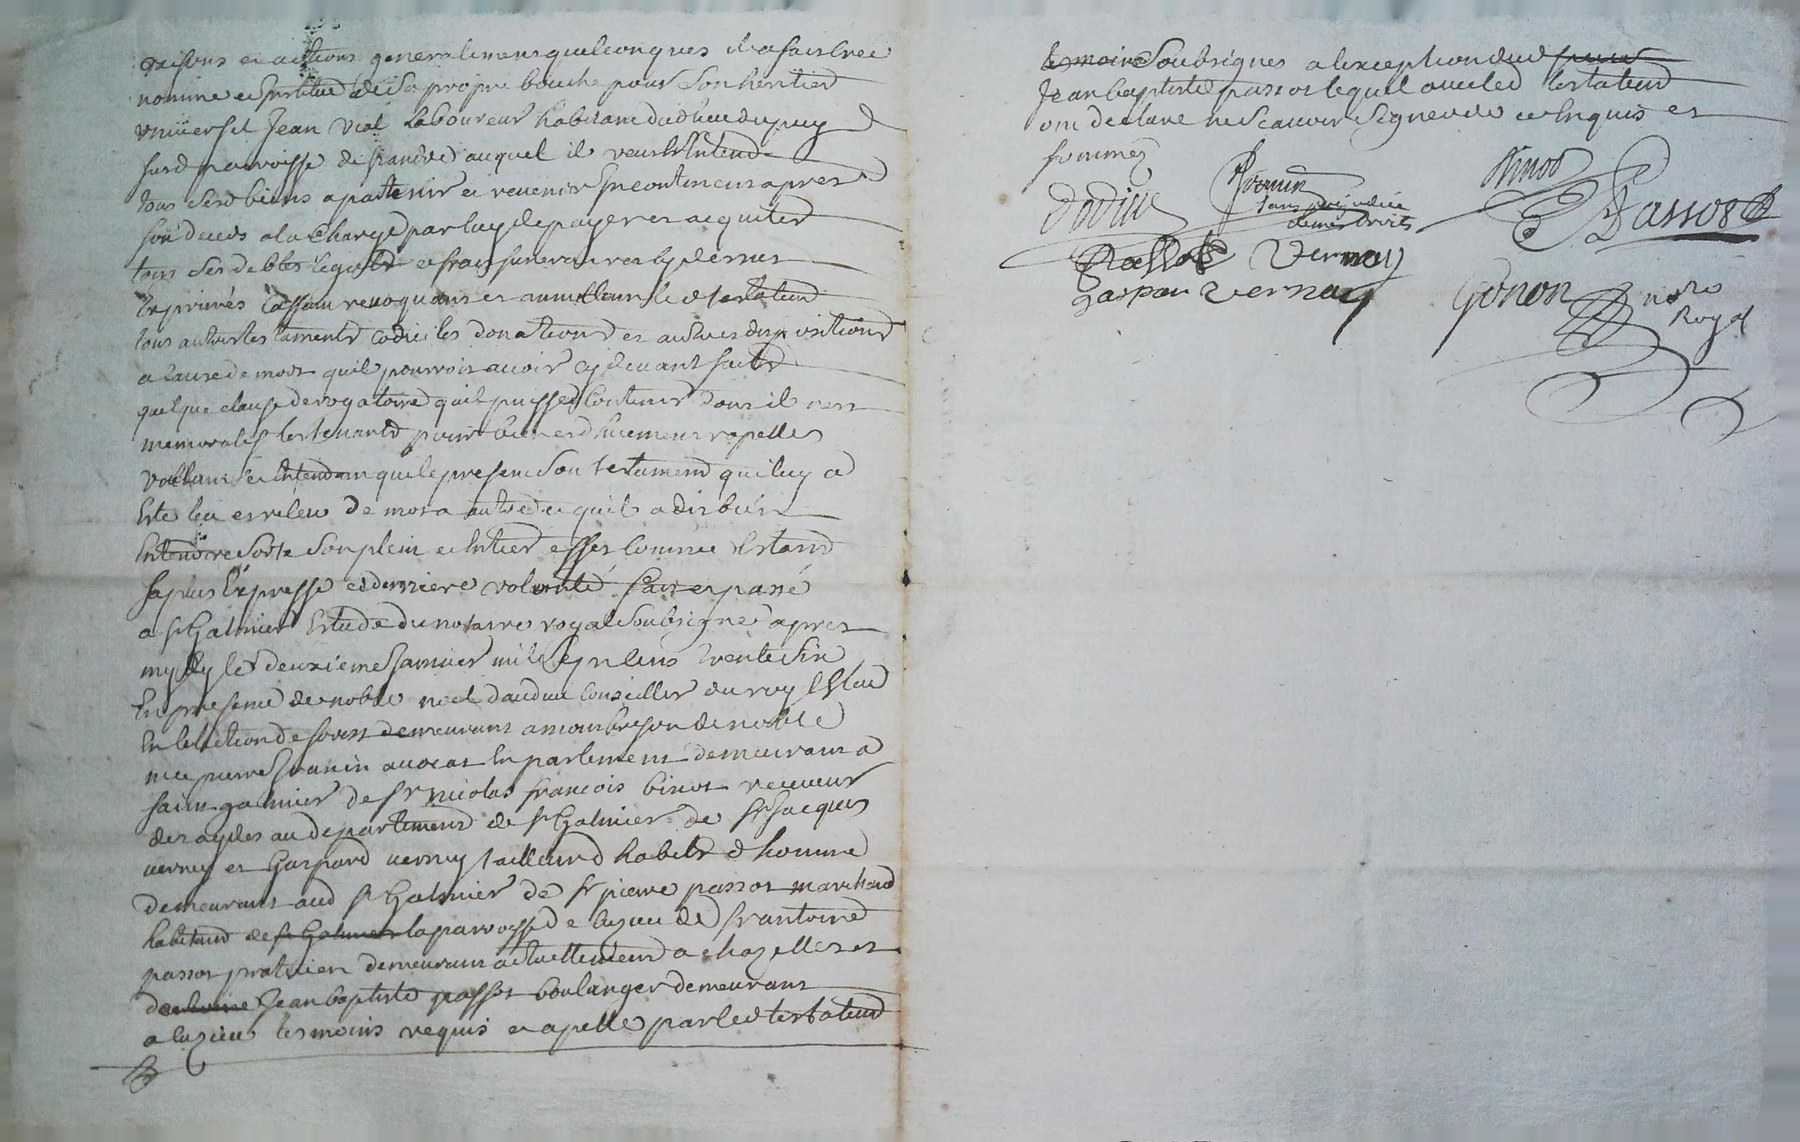 raisons et actions generalement quelconques il a fait creé
nommé et institué de sa propre bouche pour son heritier
universel Jean Vial laboureur habitant dud lieu du puy
susd parroisse de auquel il veut et entend
tous sesd biens apartenir et revenir incontinent apres
son deceds a la charge par luy de payer et acquiter
tous ses debtes legats et frais funeraires cy dessus
exprimés cassant revoquant et annullant led testateur
tous autres testaments codicilles donations et autres dispositions
a cause de mort quil pourroit avoir cy devant faite
quelque clause derogatoire quil puisse contenir dont il nest
memoratif les tenants pour bien et duement rapellés
voullant et entendant que le present son testament qui luy a
esté leu et releu de mot a autre et quil a dit bien
entendre sorte son plein et entier effet comme estant
sa plus expresse et derniere volonté fait et passé
a st Galmier estude du notaire royal soubsigné apres
midy le deuxieme janvier mil sept cens trente six
en presence de noble noel conseiller du roy esleu
en lelection de forest demeurant a montbrison de noble
me pierre avocat en parlement demeurant a
saint galmier de sr nicolas francois binot receveur
des aydes au departement de st Galmier de sr Jacques
verney et Gaspard verney tailleur d habits d homme
demeurant aud st Galmier de sr pierre passot marchand
habitant de st Galmier la parroisse d e luzieu de sr antoine
passot praticien demeurant actuellement a chazelles et
Jean baptiste passot boulanger demeurant
a luzieu tesmoins requis et apellés par led testateur
soubsignés a lexception dud
Jean baptiste passot lequel avec led testateur
ont declaré ne scavoir signer de ce enquis et
sommés
binot
sans prejudice
de mes droits
Passot
Passot Verney
Gaspar Verney
Gonon nore
Royal